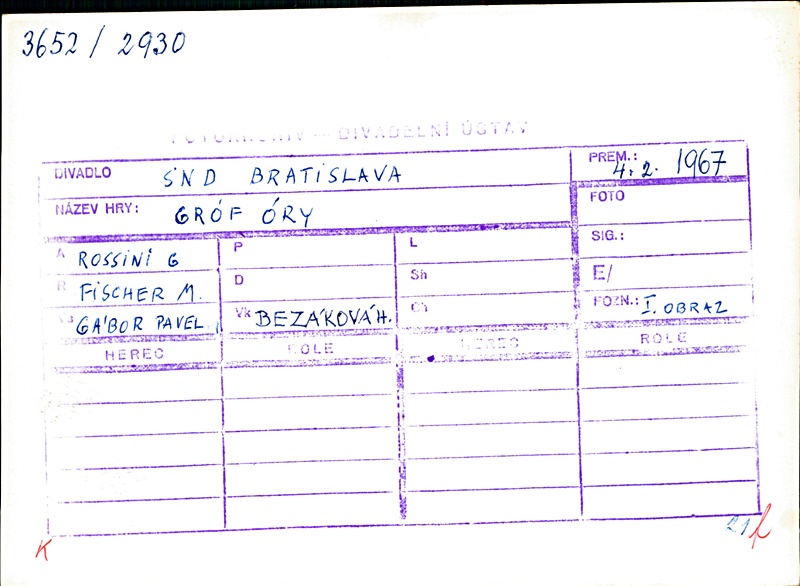 3652 / 2930
FOTOARCHIV — DIVADELNÍ ÚSTAV
DIVADLO SND BRATISLAVA
PREM.: 4. 2. 1967
NÁZEV HRY: GRÓF ÓRY
FOTO
A ROSSINI G
P
L
SIG.:
R FISCHER M.
D
Sh
E/
GÁBOR PAVEL
Vk BEZÁKOVÁ H.
Ch
POZN.: I. OBRAZ
HEREC
ROLE
HEREC
ROLE
K
21